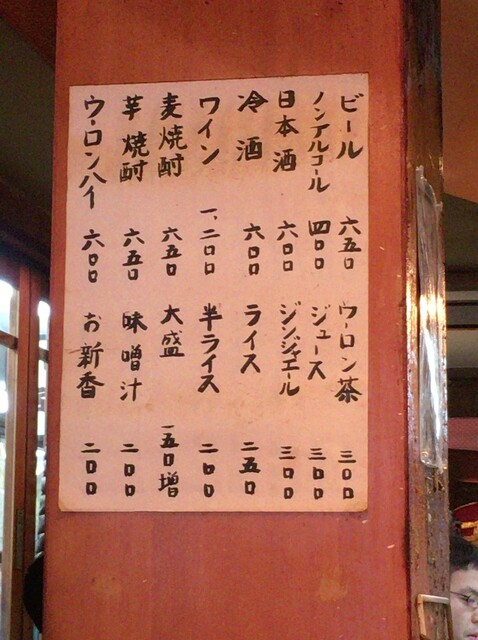 ビール 六五〇
ノンアルコール 四〇〇
日本酒 六〇〇
冷酒 六〇〇
ワイン 一、二〇〇
麦焼酎 六五〇
芋焼酎 六五〇
ウーロンハイ 六〇〇
ウーロン茶 三〇〇
ジュース 三〇〇
ジンジャエール 三〇〇
ライス 二五〇
半ライス 二〇〇
大盛 一五〇増
味噌汁 二〇〇
お新香 二〇〇